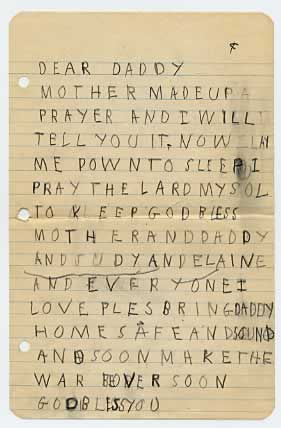 DEAR DADDY
MOTHER MADE UP A
PRAYER AND I WILL
TELL YOU IT. NOW I LAY
ME DOWN TO SLEEP I
PRAY THE LARD MY SOL
TO KEEP GOD BLESS
MOTHER AND DADDY
AND JUDY AND ELAINE
AND EVERYONE I
LOVE PLES BRING DADDY
HOME SAFE AND SOUND
AND SOON MAKE THE
WAR OVER SOON
GOD BLESS YOU